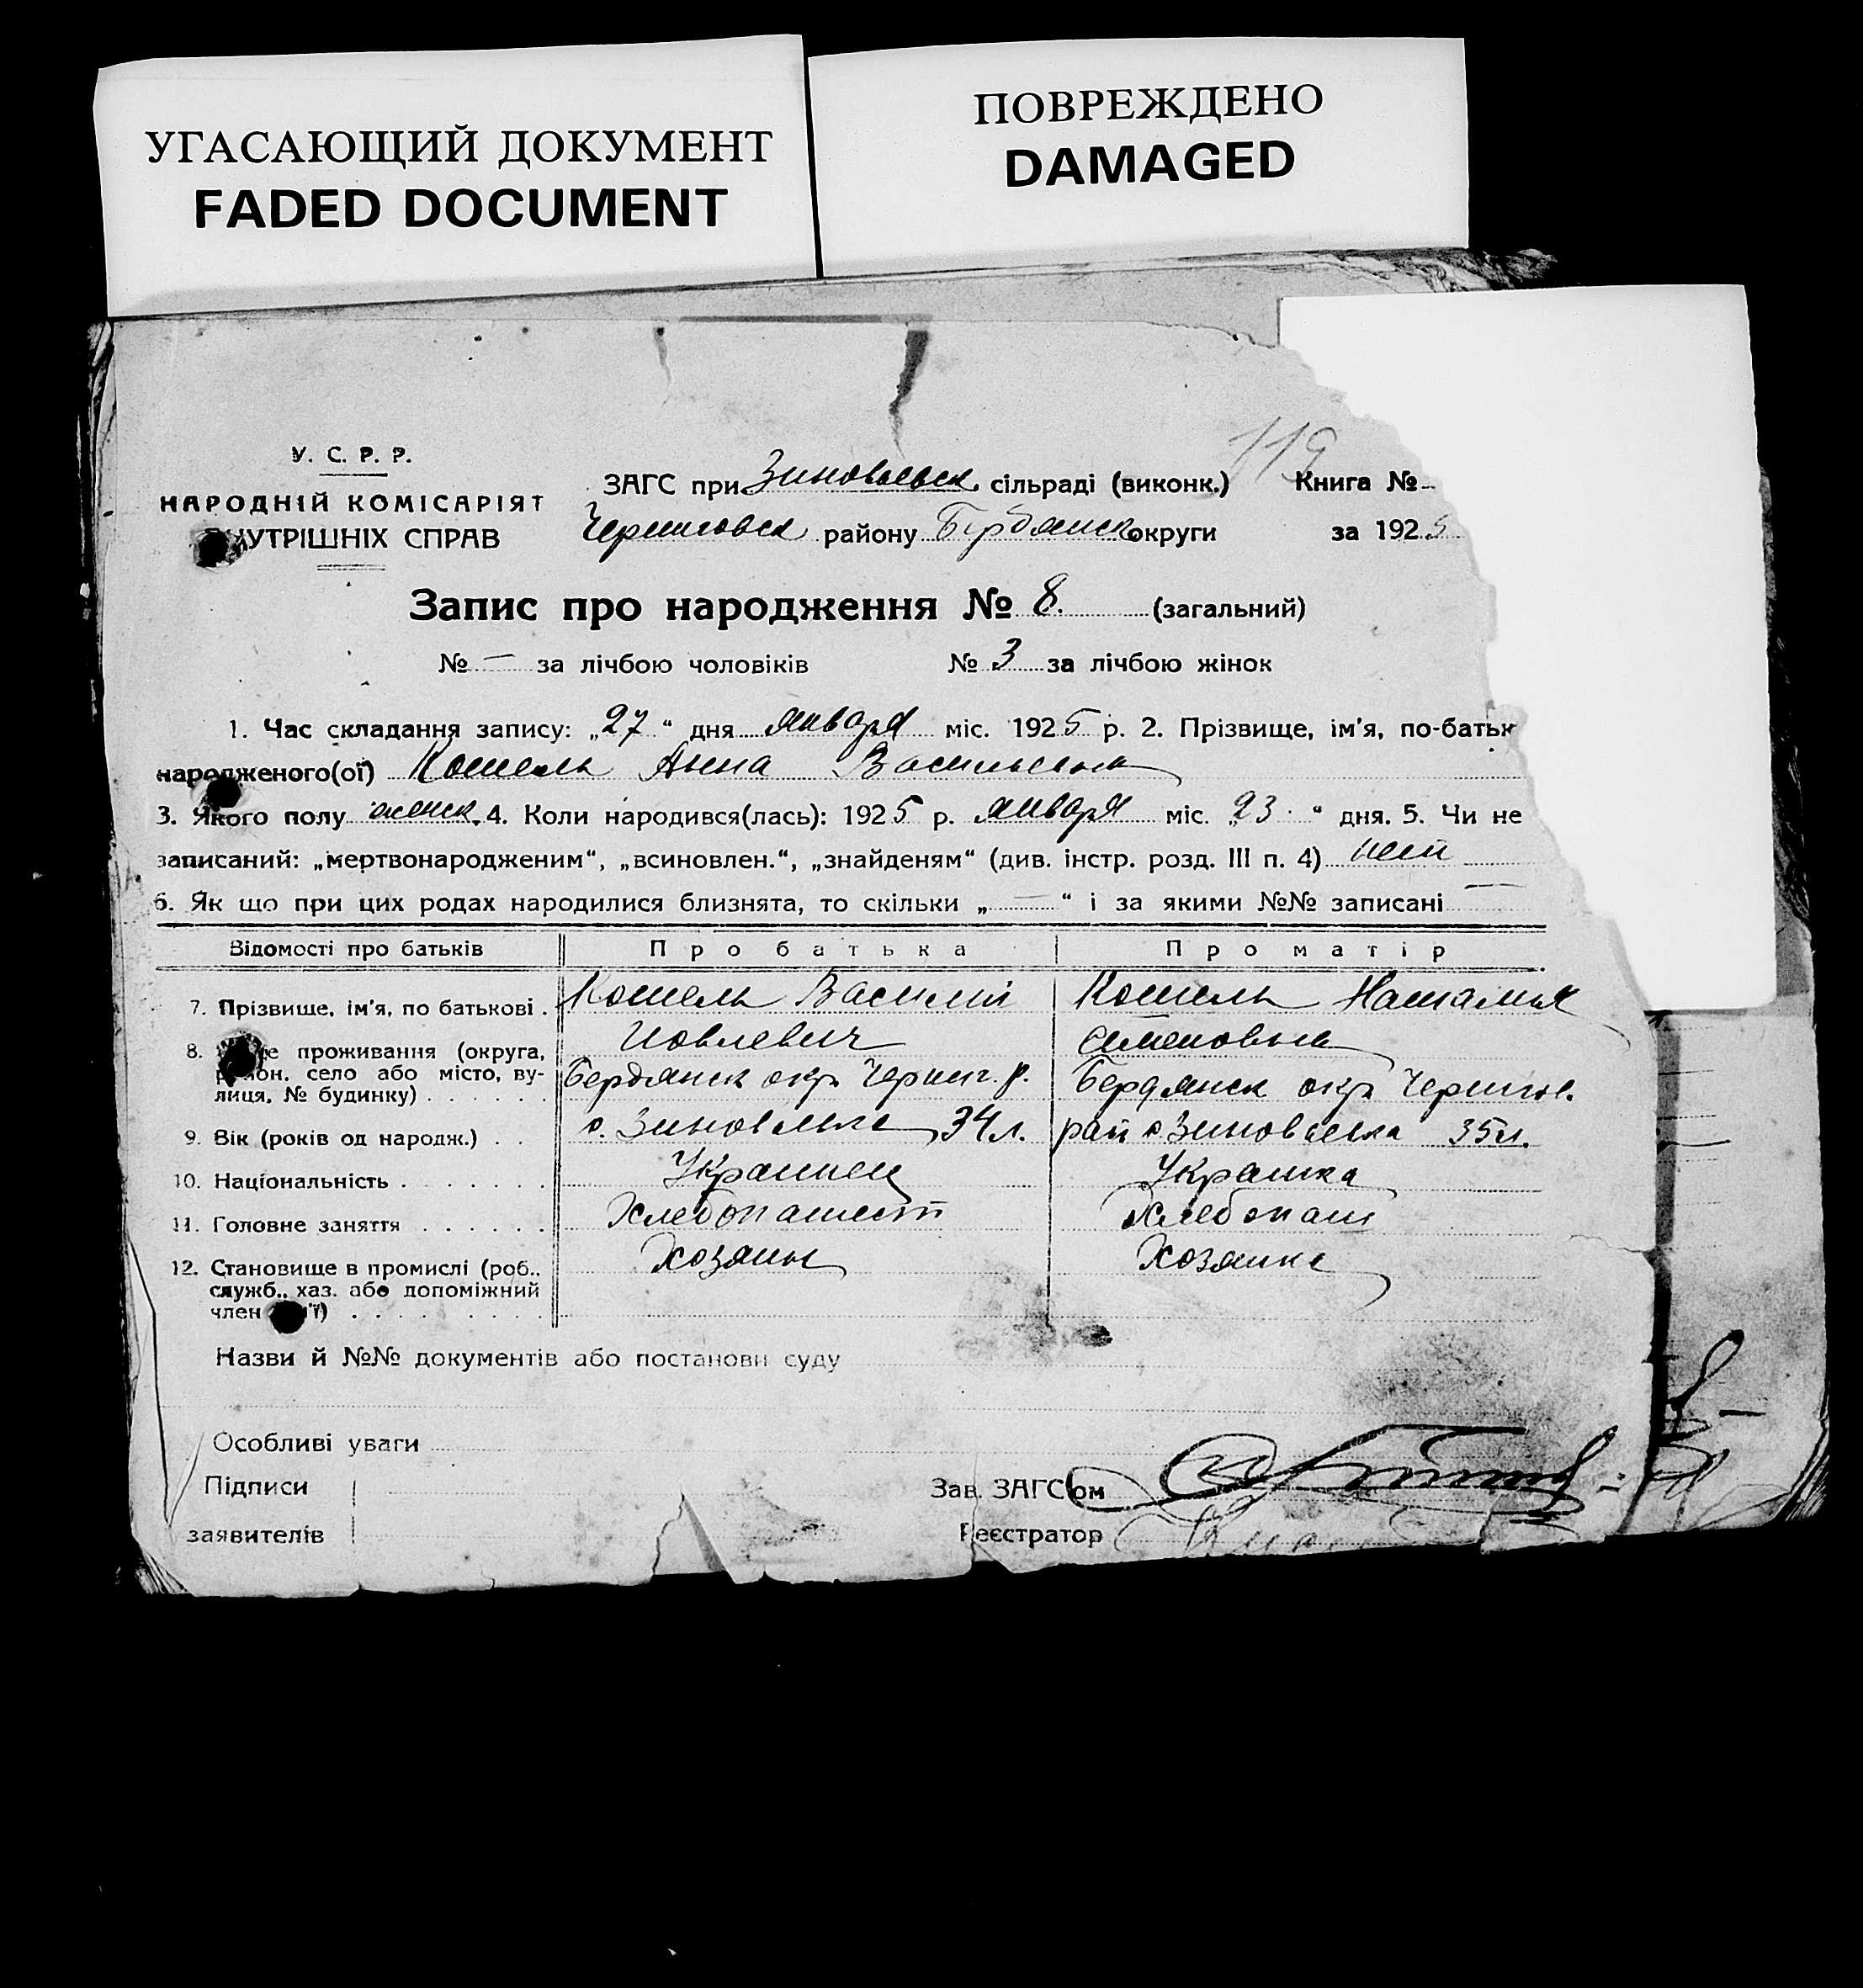 УГАСАЮЩИЙ ДОКУМЕНТ
FADED DOCUMENT
ПОВРЕЖДЕНО
DAMAGED
119
У. С. Р. Р.
НАРОДНІЙ КОМІСАРІЯТ
ВНУТРІШНІХ СПРАВ
ЗАГС при Зиновьевск. сільраді (виконк.) Книга №
Черниговск району Бердянск округи за 1925
Запис про народження № 8. (загальний)
№ — за лічбою чоловіків № 3 за лічбою жінок
1. Час складання запису: „27" дня января міс. 1925 р. 2. Прізвище, ім'я, по-батьк
народженого(ої) Кошель Анна Васильевна
3. Якого полу женск. 4. Коли народився(лась): 1925 р. января міс. „23" дня. 5. Чи не
записаний: „мертвонародженим“, „всиновлен.“, „знайденям“ (див. інстр. розд. III п. 4) нет
6. Як що при цих родах народилися близнята, то скільки „—“ і за якими №№ записані —
Відомості про батьків Про батька Про матір
7. Прізвище, ім'я, по батькові . Кошель Василий Кошель Наталия
Иовлевич Семеновна
8. проживання (округа,
район, село або місто, ву-
лиця, № будинку) . . . . . . Бердянск окр. Черниг. р. Бердянск окр Чернигов.
9. Вік (років од народж.) . . с. Зиновьевка 34 л. рай с Зиновьевка 35 л.
10. Національність . . . . . . . Украинец Украинка
11. Головне заняття . . . . . . Хлебопашест Хлебопаш
12. Становище в промислі (роб.,
служб., хаз. або допоміжний
член ї) . . . . . . . . . Хозяин Хозяйка
Назви й №№ документів або постанови суду
Особливі уваги
Підписи
заявителів
Зав. ЗАГС'ом
Реєстратор